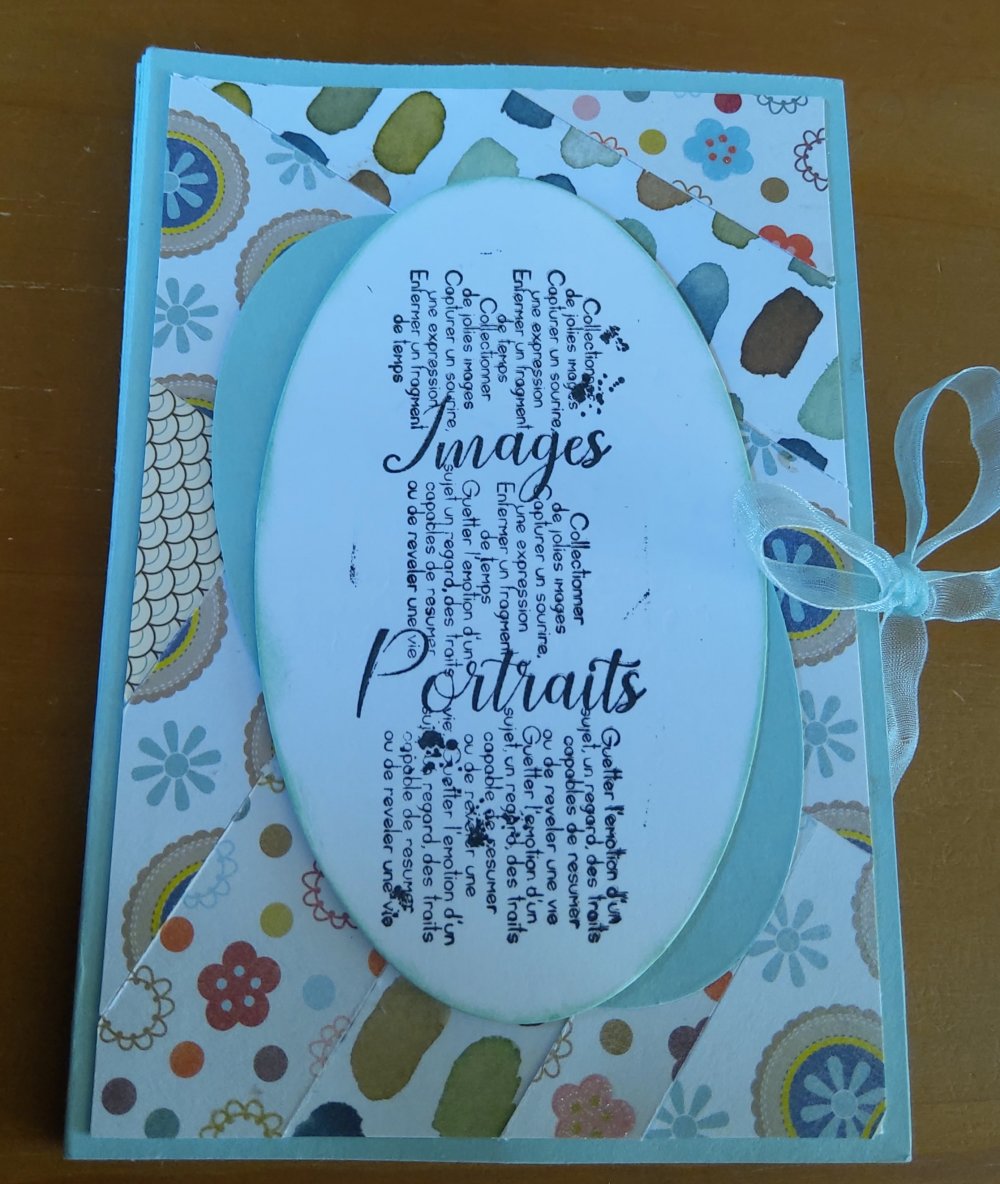 Collectionner
de jolies images
Capturer un sourire,
une expression
Enfermer un fragment
de temps
Collectionner
de jolies images
Capturer un sourire,
une expression
Enfermer un fragment
de temps
Images
Collectionner
de jolies images
Capturer un sourire,
une expression
Enfermer un fragment
de temps
Guetter l'emotion d'un
sujet un regard, des traits
capables de resumer
ou de reveler une vie
Portraits
Guetter l'emotion d'un
sujet, un regard, des traits
capables de resumer
ou de reveler une vie
Guetter l'emotion d'un
sujet, un regard, des traits
capable de resumer
ou de reveler une
vie Guetter l'emotion d'un
regard, des traits
capable de resumer
ou de reveler une vie